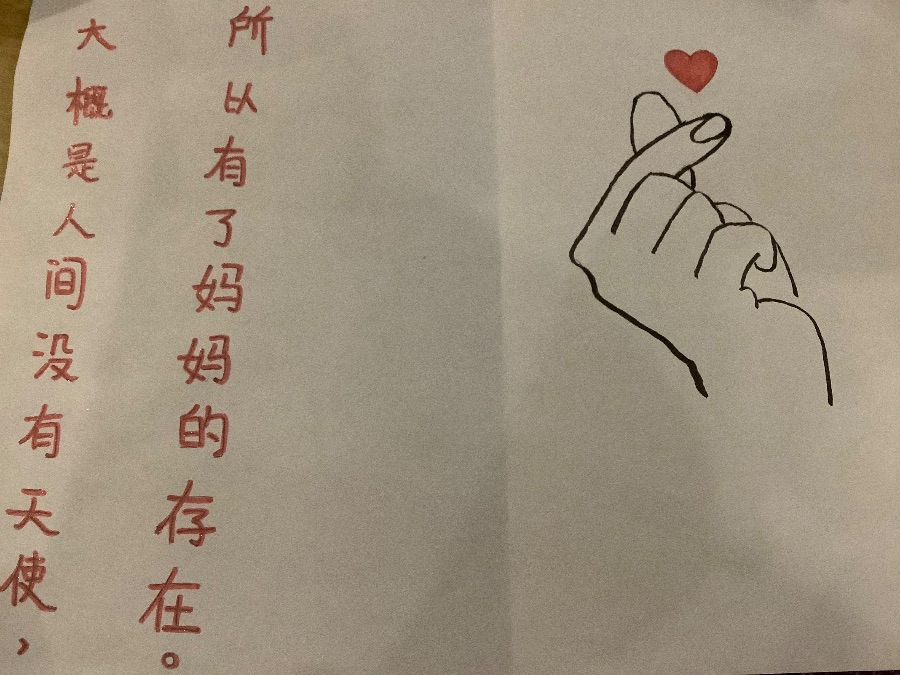 大概是人间没有天使，
所以有了妈妈的存在。